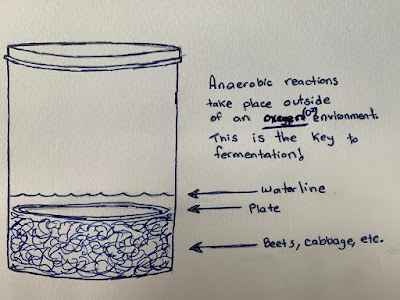 Anaerobic reactions
take place outside
of an oxegen (O²) environment.
This is the key to
fermentation!
Waterline
Plate
Beets, cabbage, etc.